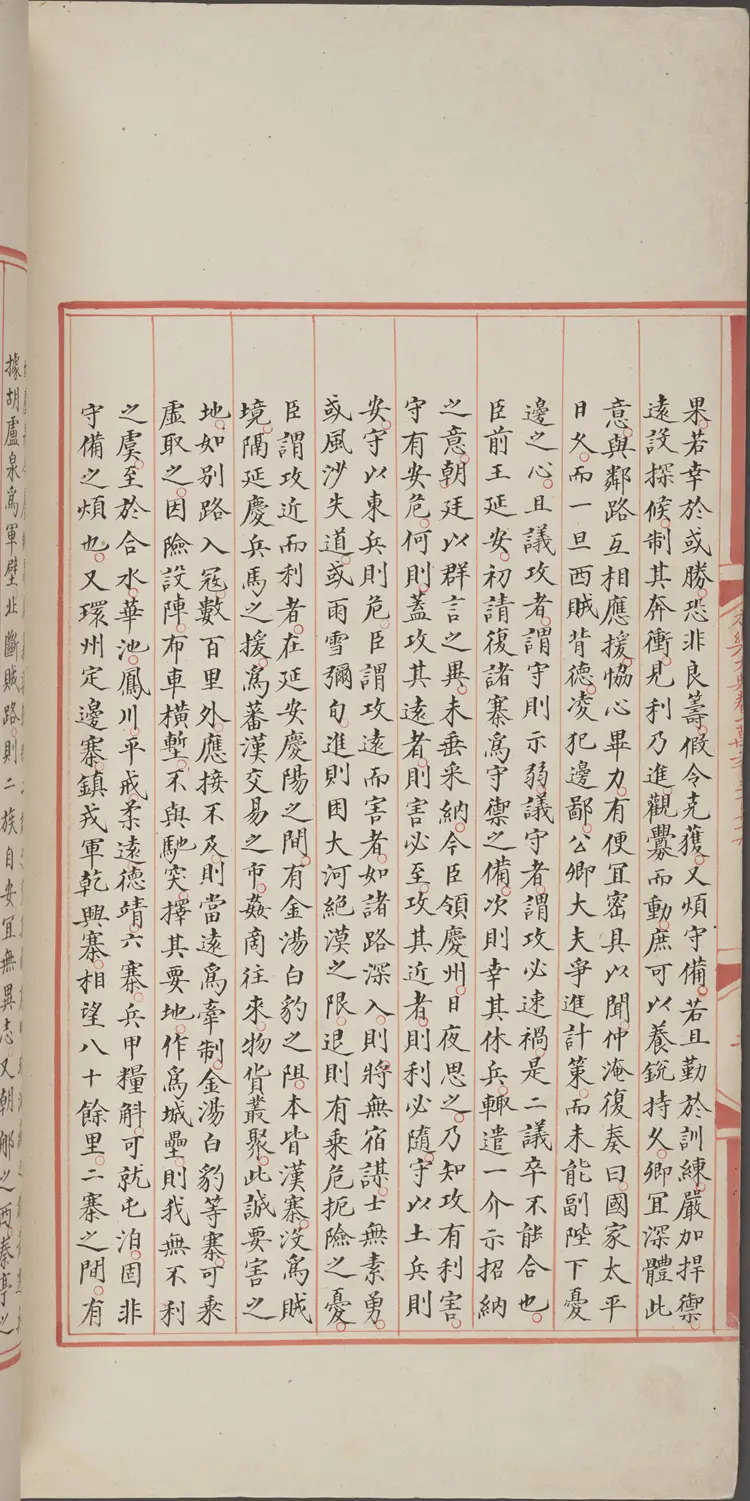 果。若幸於或勝。恐非良籌。假令克獲。又煩守備。若且勤於訓練。嚴加捍禦。
遠設探候。制其奔衝。見利乃進。觀釁而動。庶可以養銳持久。卿宜深體此
意。與鄰路互相應援。恊心畢力。有便宜密具以聞。仲淹復奏曰。國家太平
日久。而一旦西賊背德。凌犯邊鄙。公卿大夫爭進計策。而未能副陛下憂
邊之心。且議攻者。謂守則示弱。議守者。謂攻必速禍。是二議卒不能合也。
臣前王延安。初請復諸寨爲守禦之備。次則幸其休兵。輒遣一介示招納
之意。朝廷以群言之異。未垂采納。今臣領慶州。日夜思之。乃知攻有利害。
守有安危。何則。蓋攻其遠者。則害必至。攻其近者。則利必隨。守以土兵則
安。守以東兵則危。臣謂攻遠而害者。如諸路深入。則將無宿謀。士無素勇。
或風沙失道。或雨雪彌旬。進則困大河絶漠之限。退則有乘危扼險之憂。
臣謂攻近而利者。在延安慶陽之間。有金湯白豹之阻。本皆漢寨。沒爲賊
境。隔延慶兵馬之援。爲蕃漢交易之市。姦商往來。物貨叢聚。此誠要害之
地。如別路入寇。數百里外。應接不及。則當遠爲牽制。金湯白豹等寨。可乘
虛取之。因險設陣。布車橫塹。不與馳突。擇其要地。作爲城壘。則我無不利
之虞。至於合水。華池。鳳川。平戎。柔遠。德靖。六寨。兵甲糧斛。可就屯泊。固非
守備之煩也。又環州定邊寨。鎮戎軍乾興寨。相望八十餘里。二寨之間。有
據胡盧泉爲軍壁。北斷賊路。則二族自安。宜無異志。又朝那之西。秦亭之